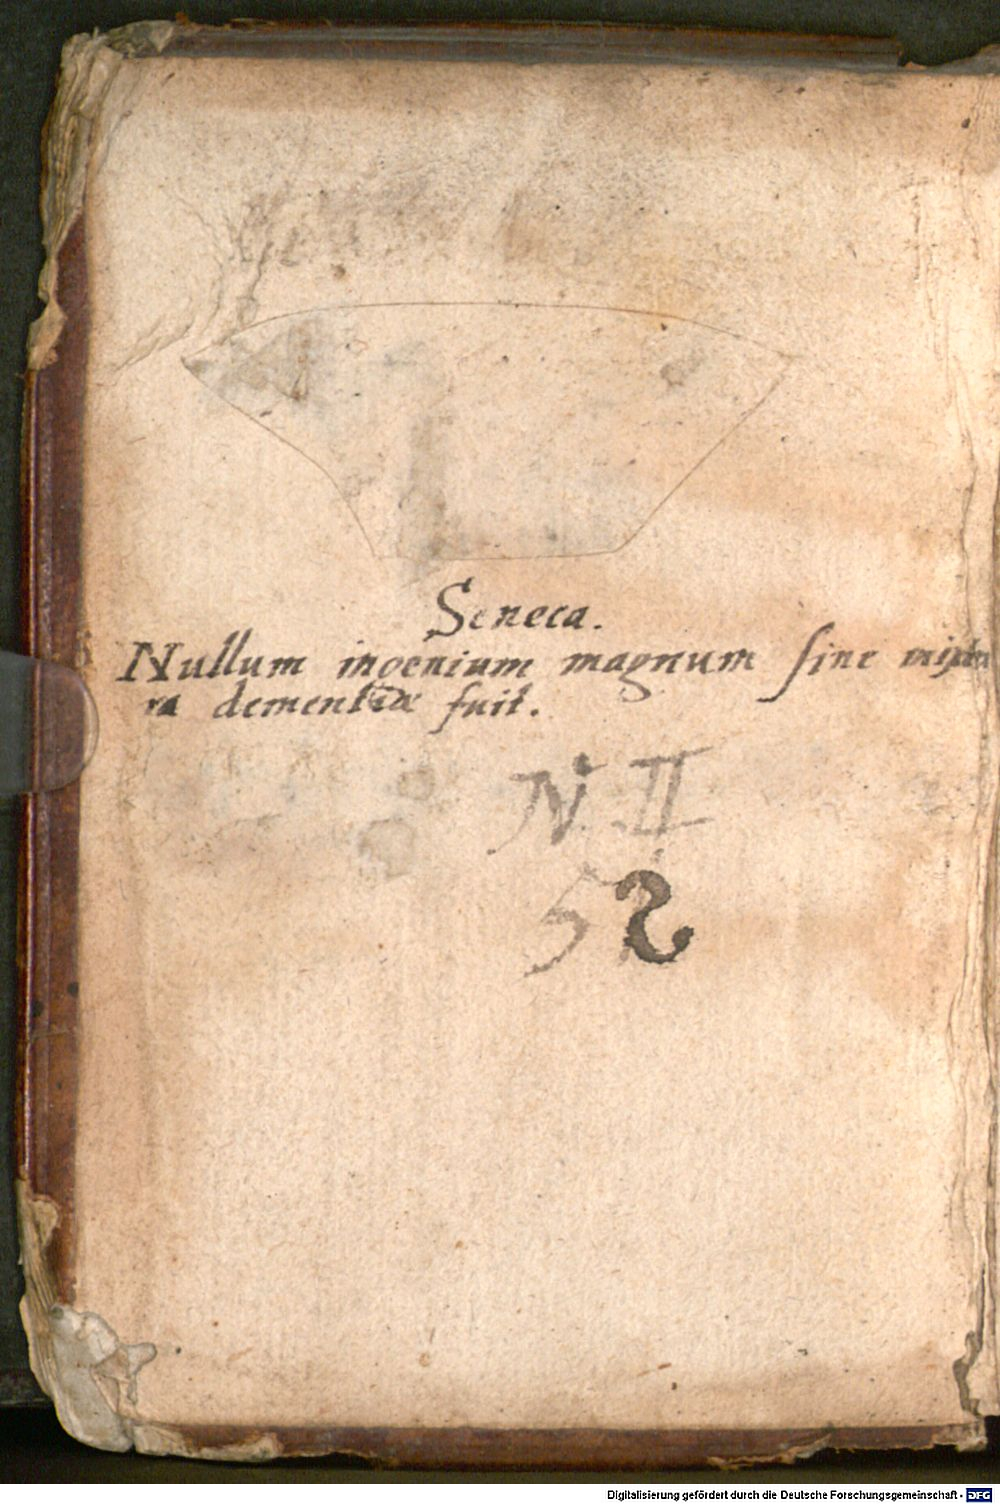 Seneca.
Nullum ingenium magnum sine mixtu
ra dementiæ fuit.
N II
52
Digitalisierung gefördert durch die Deutsche Forschungsgemeinschaft - DFG